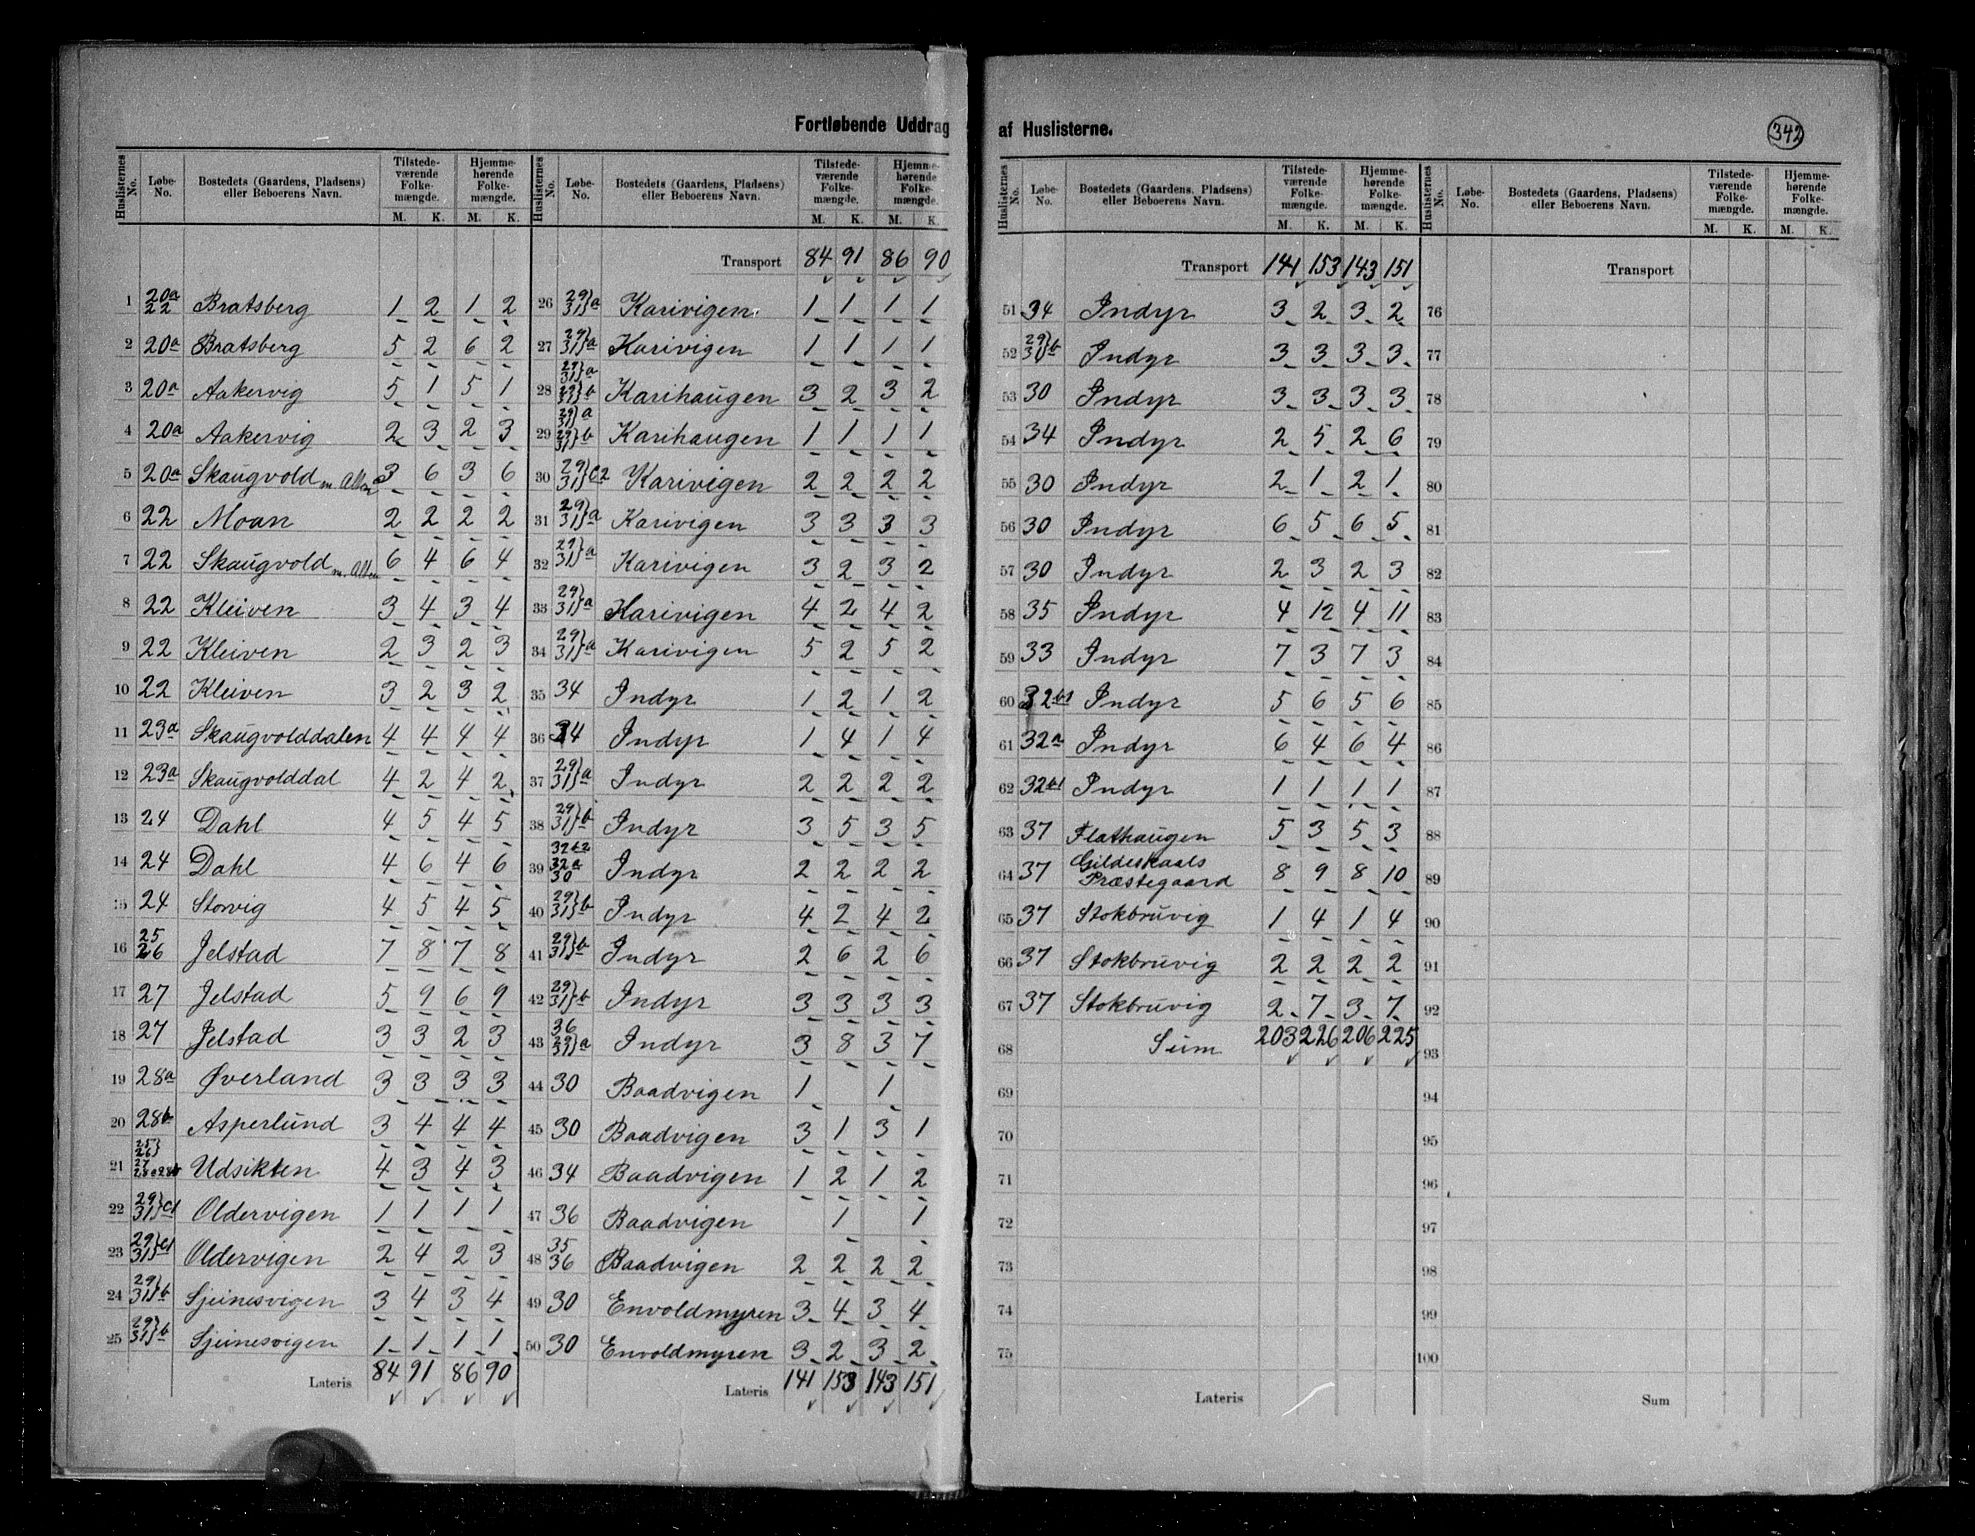 Fortløbende Uddrag af Huslisterne.
342
Huslisternes No. | Løbe-No. | Bostedets (Gaardens, Pladsens) eller Beboerens Navn. | Tilstedeværende Folkemængde. M. K. | Hjemmehørende Folkemængde. M. K.
1 20a 22 Bratsberg 1 2 1 2
2 20a Bratsberg 5 2 6 2
3 20a Aakervig 5 1 5 1
4 20a Aakervig 2 3 2 3
5 20a Skaugvold 3 6 3 6
6 22 Moan 2 2 2 2
7 22 Skaugvold 6 4 6 4
8 22 Kleiven 3 4 3 4
9 22 Kleiven 2 3 2 3
10 22 Kleiven 3 2 3 2
11 23a Skaugvolddalen 4 4 4 4
12 23a Skaugvolddal 4 2 4 2
13 24 Dahl 4 5 4 5
14 24 Dahl 4 6 4 6
15 24 Storvig 4 5 4 5
16 25 26 Jelstad 7 8 7 8
17 27 Jelstad 5 9 6 9
18 27 Jelstad 3 3 2 3
19 28a Øverland 3 3 3 3
20 28b Asperlund 3 4 4 4
21 25 26 27 28a 28b Udsikten 4 3 4 3
22 29 31 c1 Oldervigen 1 1 1 1
23 29 31 c1 Oldervigen 2 4 2 3
24 29 31 b Sjeinesvigen 3 4 3 4
25 29 31 b Sjeinesvigen 1 1 1 1
Lateris 84 91 86 90
Huslisternes No. | Løbe-No. | Bostedets (Gaardens, Pladsens) eller Beboerens Navn. | Tilstedeværende Folkemængde. M. K. | Hjemmehørende Folkemængde. M. K.
Transport 84 91 86 90
26 29 31 a Karivigen 1 1 1 1
27 29 31 a Karivigen 1 1 1 1
28 29 31 a 29 31 b Karihaugen 3 2 3 2
29 29 31 a 29 31 b Karihaugen 1 1 1 1
30 29 31 c2 Karivigen 2 2 2 2
31 29 31 a Karivigen 3 3 3 3
32 29 31 a Karivigen 3 2 3 2
33 29 31 a Karivigen 4 2 4 2
34 29 31 a Karivigen 5 2 5 2
35 34 Indyr 1 2 1 2
36 34 Indyr 1 4 1 4
37 29 31 a Indyr 2 2 2 2
38 29 31 b Indyr 3 5 3 5
39 32b2 32a 30 Indyr 2 2 2 2
40 29 31 b Indyr 4 2 4 2
41 29 31 b Indyr 2 6 2 6
42 29 31 b Indyr 3 3 3 3
43 36 29 31 a Indyr 3 8 3 7
44 30 Baadvigen 1 1
45 30 Baadvigen 3 1 3 1
46 34 Baadvigen 1 2 1 2
47 36 Baadvigen 1 1
48 35 36 Baadvigen 2 2 2 2
49 30 Envoldmyren 3 4 3 4
50 30 Envoldmyren 3 2 3 2
Lateris 141 153 143 151
Huslisternes No. | Løbe-No. | Bostedets (Gaardens, Pladsens) eller Beboerens Navn. | Tilstedeværende Folkemængde. M. K. | Hjemmehørende Folkemængde. M. K.
Transport 141 153 143 151
51 34 Indyr 3 2 3 2
52 29 31 b Indyr 3 3 3 3
53 30 Indyr 3 3 3 3
54 34 Indyr 2 5 2 6
55 30 Indyr 2 1 2 1
56 30 Indyr 6 5 6 5
57 30 Indyr 2 3 2 3
58 35 Indyr 4 12 4 11
59 33 Indyr 7 3 7 3
60 32b1 Indyr 5 6 5 6
61 32a Indyr 6 4 6 4
62 32b1 Indyr 1 1 1 1
63 37 Flathaugen 5 3 5 3
64 37 Gildeskaals Præstegaard 8 9 8 10
65 37 Stokbruvig 1 4 1 4
66 37 Stokbruvig 2 2 2 2
67 37 Stokbruvig 2 7 3 7
68 Sum 203 226 206 225
69
70
71
72
73
74
75
Lateris
Huslisternes No. | Løbe-No. | Bostedets (Gaardens, Pladsens) eller Beboerens Navn. | Tilstedeværende Folkemængde. M. K. | Hjemmehørende Folkemængde. M. K.
Transport
76
77
78
79
80
81
82
83
84
85
86
87
88
89
90
91
92
93
94
95
96
97
98
99
100
Sum